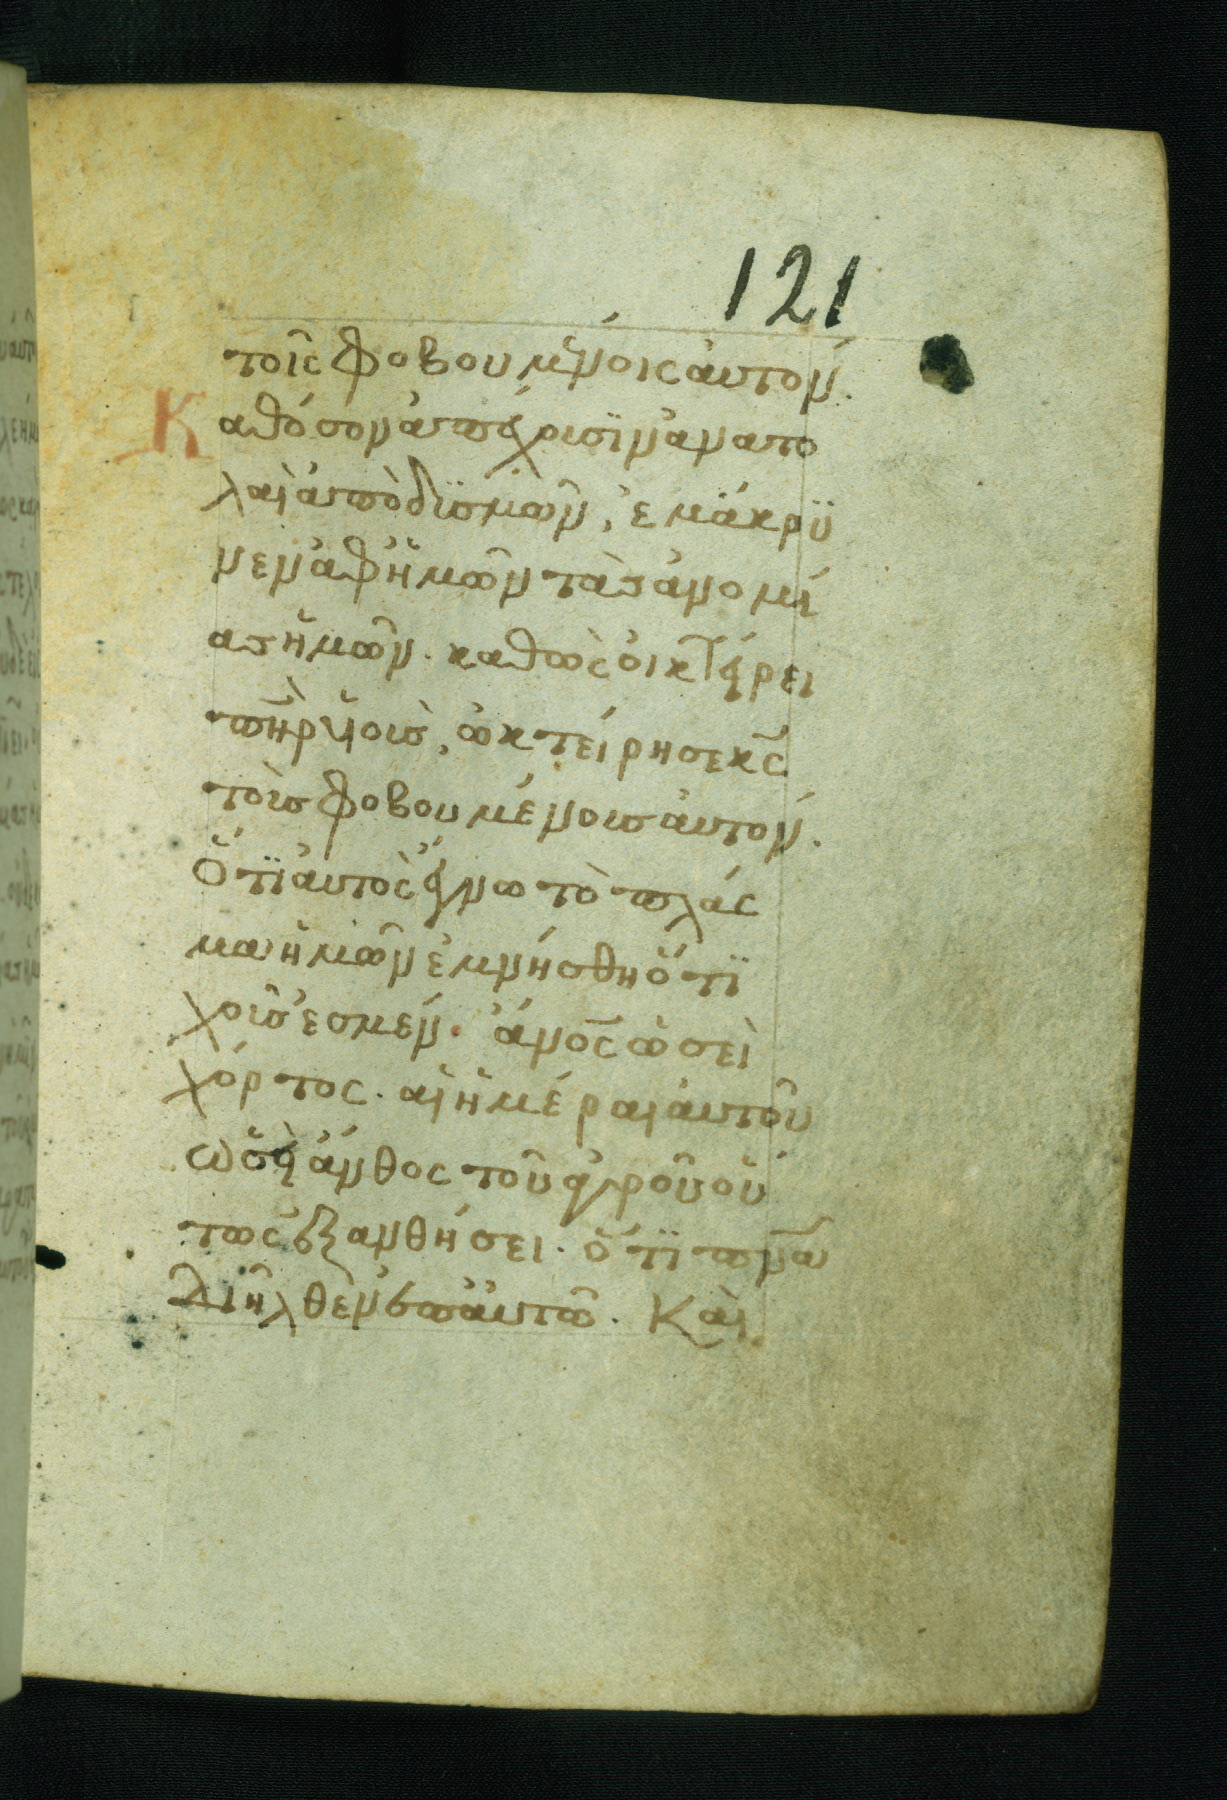 121
τοῖς φοβουμένοις αὐτόν.
Καθόσον ἀπέχουσϊν ἀνατο
λαὶ ἀπὸ δϋσμῶν, ἐμάκρϋ
νεν ἀφ' ἡμῶν τὰς ἀνομί
ας ἡμῶν. καθὼς οἰκτείρει
πῆρ ὑιοὺς, ὠκτείρησε κς
τοὺς φοβουμένους αὐτόν.
Ὅτϊ αὐτὸς ἔγνω τὸ πλάς
μα ἡμῶν ἐμνήσθη ὅτϊ
χοῦς ἐσμεν. ἄνος ὡσεὶ
χόρτος. αἱ ἡμέραι αὐτοῦ
ὡσεὶ ἄνθος τοῦ ἀγροῦ οὕ
τως ἐξανθήσει. ὅτϊ πνα
διῆλθεν ἐν αὐτῶ. Καὶ